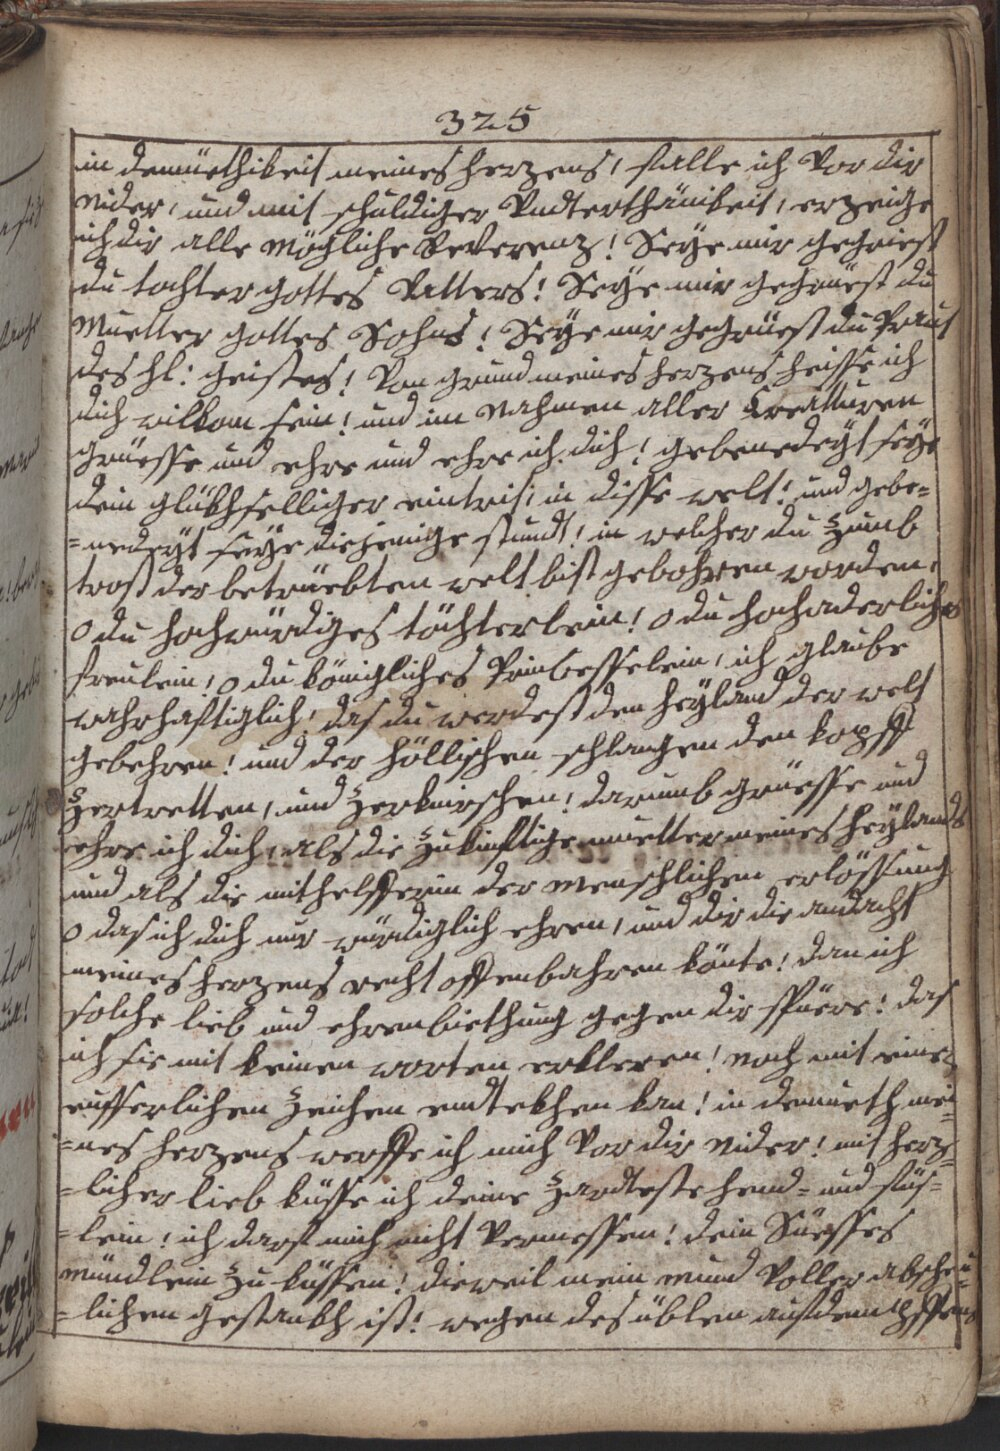 325
in demüethikeit meines herzens, falle ich Vor dir
nider, und mit schuldiger Undterthänikeit, erzeige
ich dir alle Möchliche Reverenz! Seye mir gegriest
du tochter gottes Vatters! Seye mir gegrüest du
Muetter gottes Sohns! Seye mir gegrüest du Praut
des hl: geistes! Von grund meines herzens heisse ich
dich wilkom sein! und im Nahmen aller Kreatturen
grüesse und ehre und ehre ich dich! gebenedeyt seye
dein glükhselliger eintrit, in disse welt! und gebe=
=nedeyt seye diejenige stundt! in welcher du Zum
trost der betrüebten welt bist gebohren worden.
O du hochwürdiges töchterlein! o du hochaderliches
freulein! o du königliches Prinbesselein, ich glaube
wahrhafftiglich! das du werdest den heyland der welt
gebehren! und der höllischen schlangen den kopff
Zertretten, und Zerknirschen! darumb grüesse und
ehre ich dich, als die Zukinfftige muetter meines heylands
und als die mithelfferin der menschlichen erlössung
O das ich dich nur würdiglich ehren, und dir die andacht
meines herzens recht offenbahren könte! dan ich
solche lieb und ehrenbiethung gegen dir spüere! das
ich sie mit keinen worten erkleren! noch mit einen
eusserlichen Zeichen endtekhen kan! in demueth mei=
=nes herzens werffe ich mich Vor dir nider! mit herz=
=licher lieb küsse ich deine Zardteste hend= und füs=
=lein! ich darf mich nicht Vermessen! dein Süesses
mündlein Zu küssen! dieweil mein mund Voller abscheu=
=lichen gestankh ist! wegen des üblen